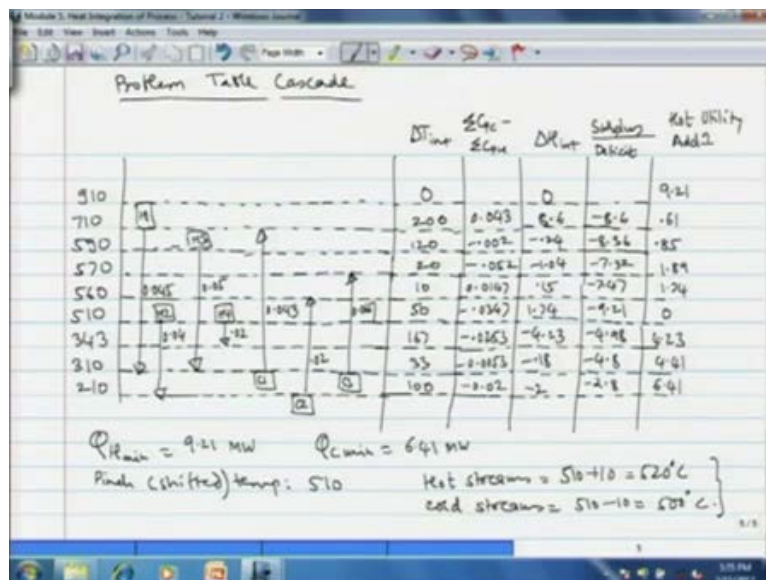 Module 5. Heat Integration of Process - Tutorial 2 - Windows Journal
File Edit View Insert Actions Tools Help
Page Width
Problem Table Cascade
ΔTint ΣCpc - ΣCpH ΔHint Surplus Deficit Hot Utility Add?
910 0 0 9.21
710 H1 200 0.043 8.6 -8.6 .61
590 H3 120 -.002 -.24 -8.36 .85
570 20 -.052 -1.04 -7.32 1.89
560 0.045 0.05 10 0.0147 .15 -7.47 1.74
510 H2 H4 0.043 50 1.74 -9.21 0
343 0.04 .02 167 -.0253 -4.23 -4.98 4.23
310 .02 33 -0.0053 -.18 -4.8 4.41
210 C1 C2 C3 100 -0.02 -2 -2.8 6.41
QHmin = 9.21 MW QCmin = 6.41 MW
Pinch (shifted) temp: 510 Hot streams = 510+10 = 520°C
cold streams = 510-10 = 500°C.
5:15 PM